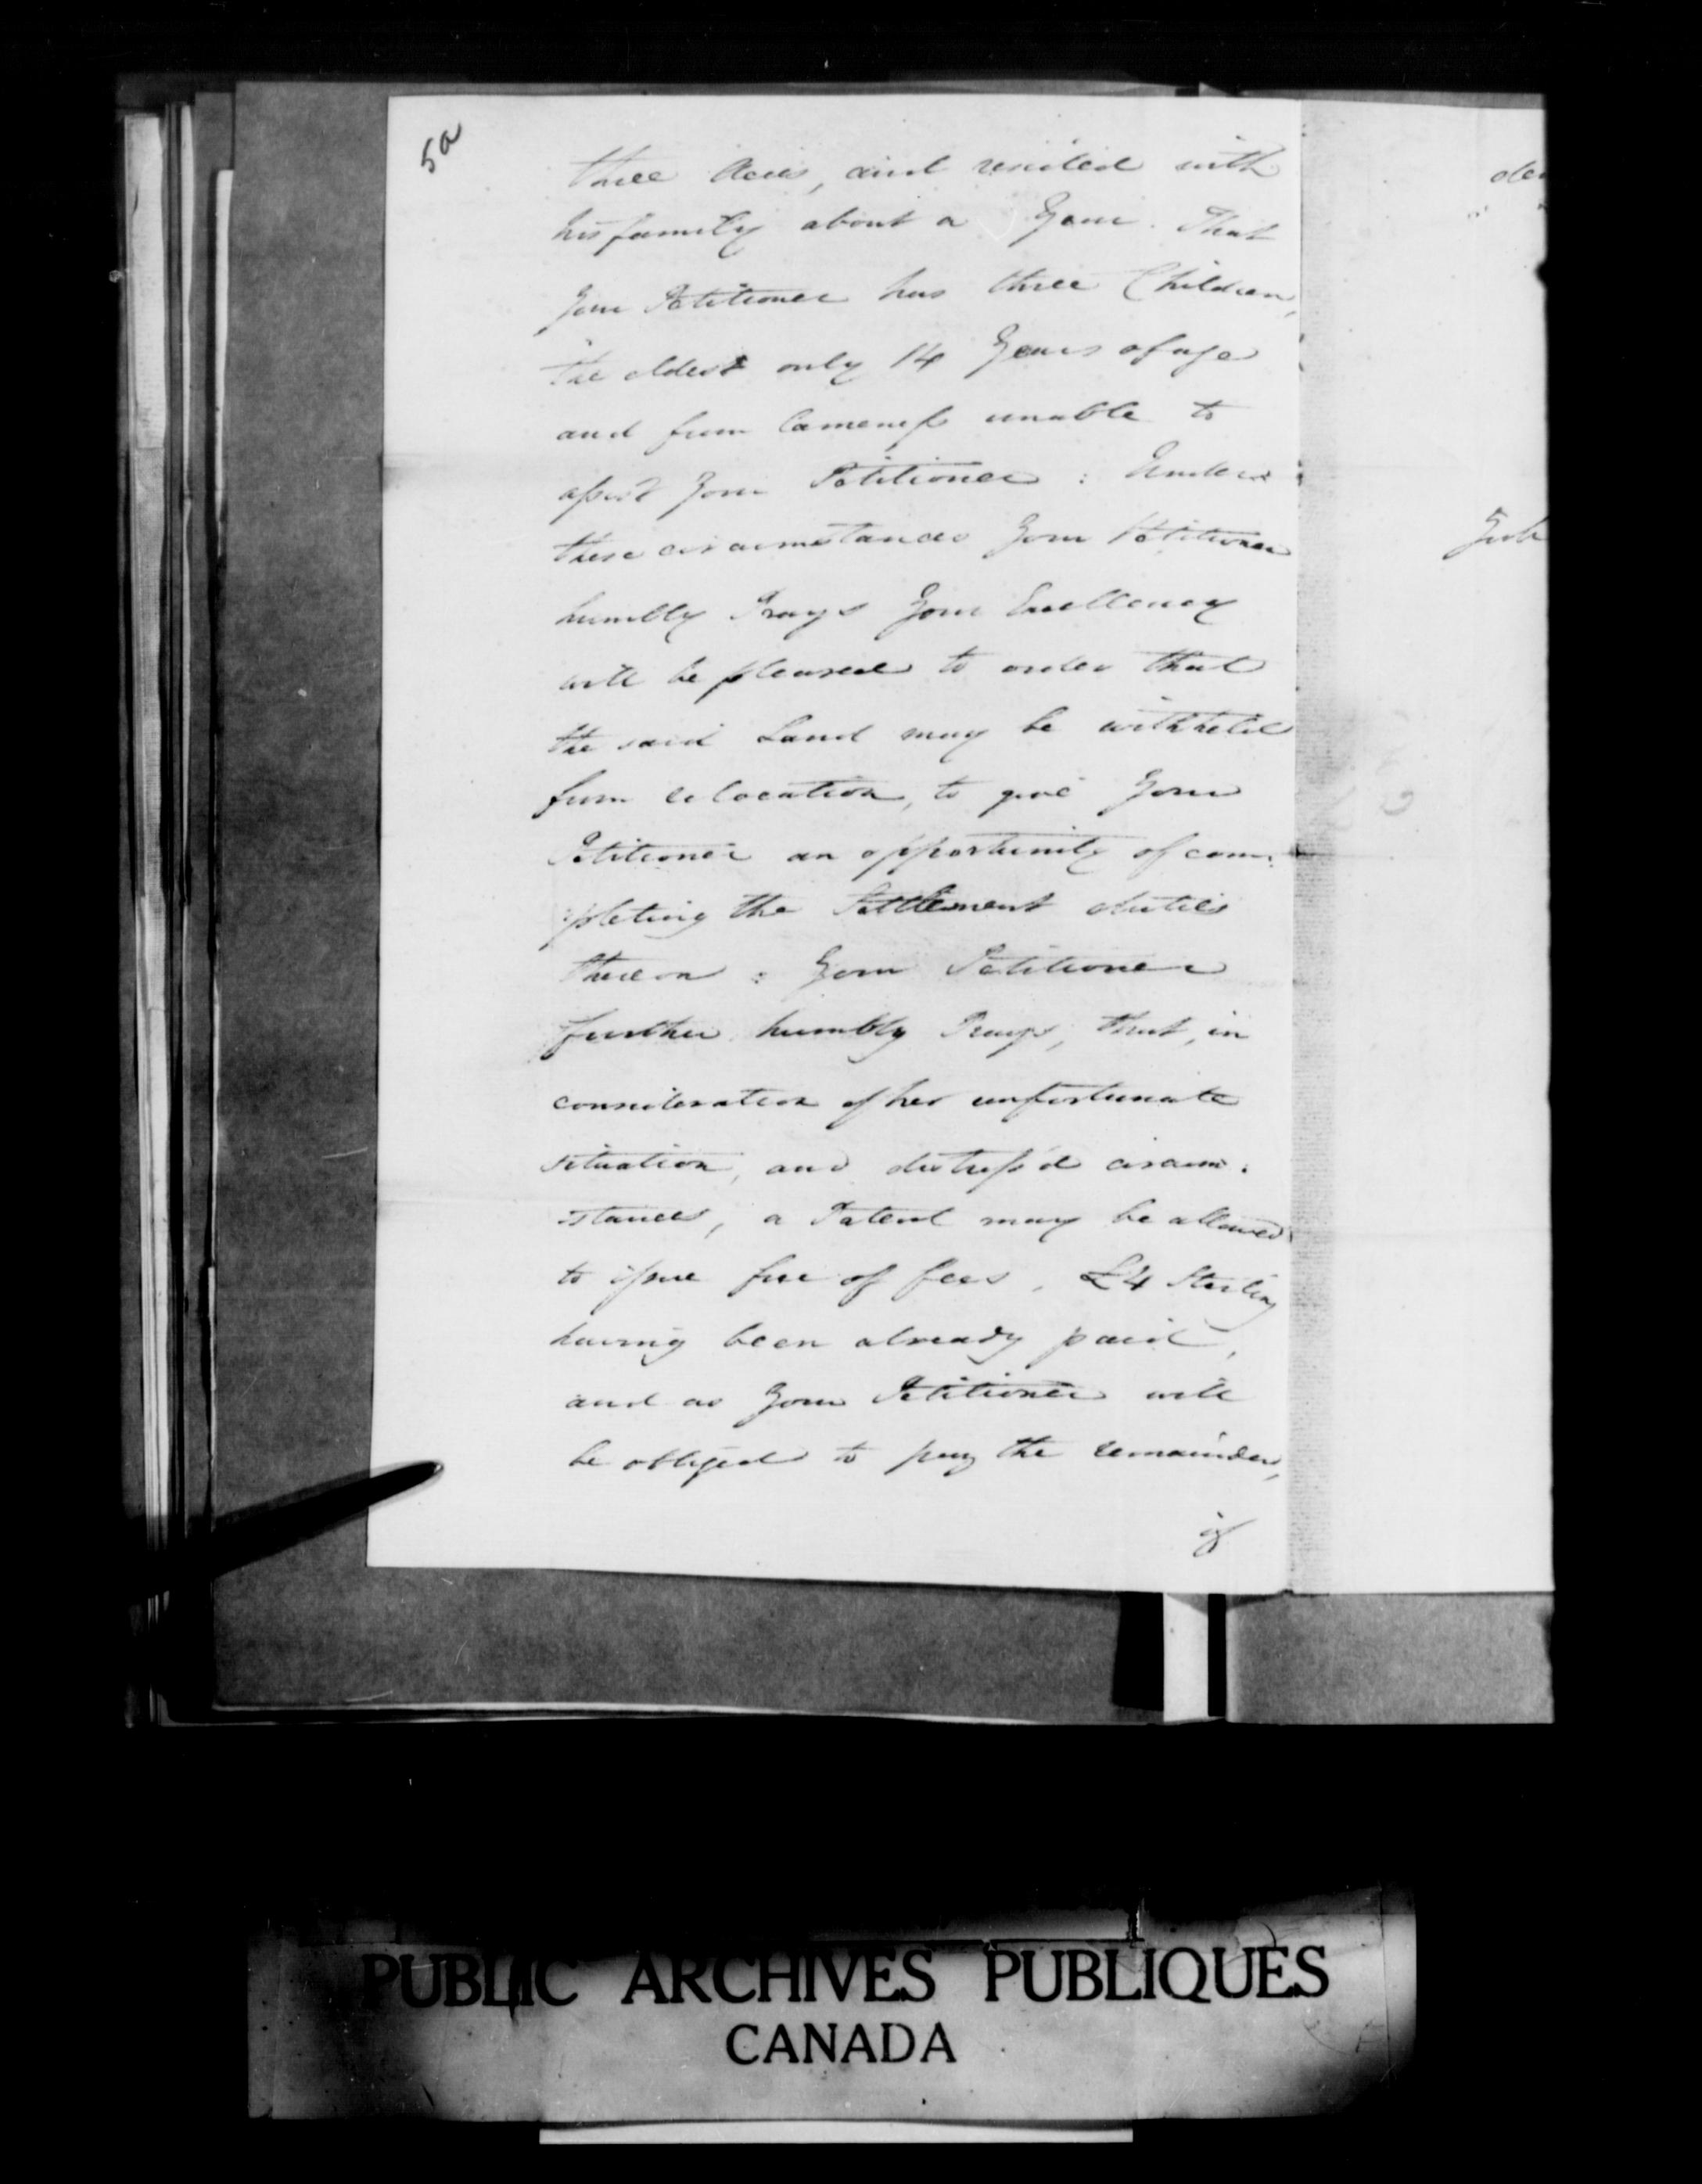 5a
three Acres, and resided with
his family about a Year. That
Your Petitioner has three Children,
the oldest only 14 Years of age
and from Lameness unable to
assist Your Petitioner : Under
these circumstances Your Petitioner
humbly Prays Your Excellency
will be pleased to order that
the said Land may be withheld
from relocation, to give Your
Petitioner an opportunity of com-
pleting the Settlement duties
thereon : Your Petitioner
further humbly Prays, that, in
consideration of her unfortunate
situation, and distress'd circum-
stances, a Patent may be allowed
to issue free of fees, £4 Sterling
having been already paid,
and as Your Petitioner will
be obliged to pay the remainder,
if
PUBLIC ARCHIVES PUBLIQUES
CANADA